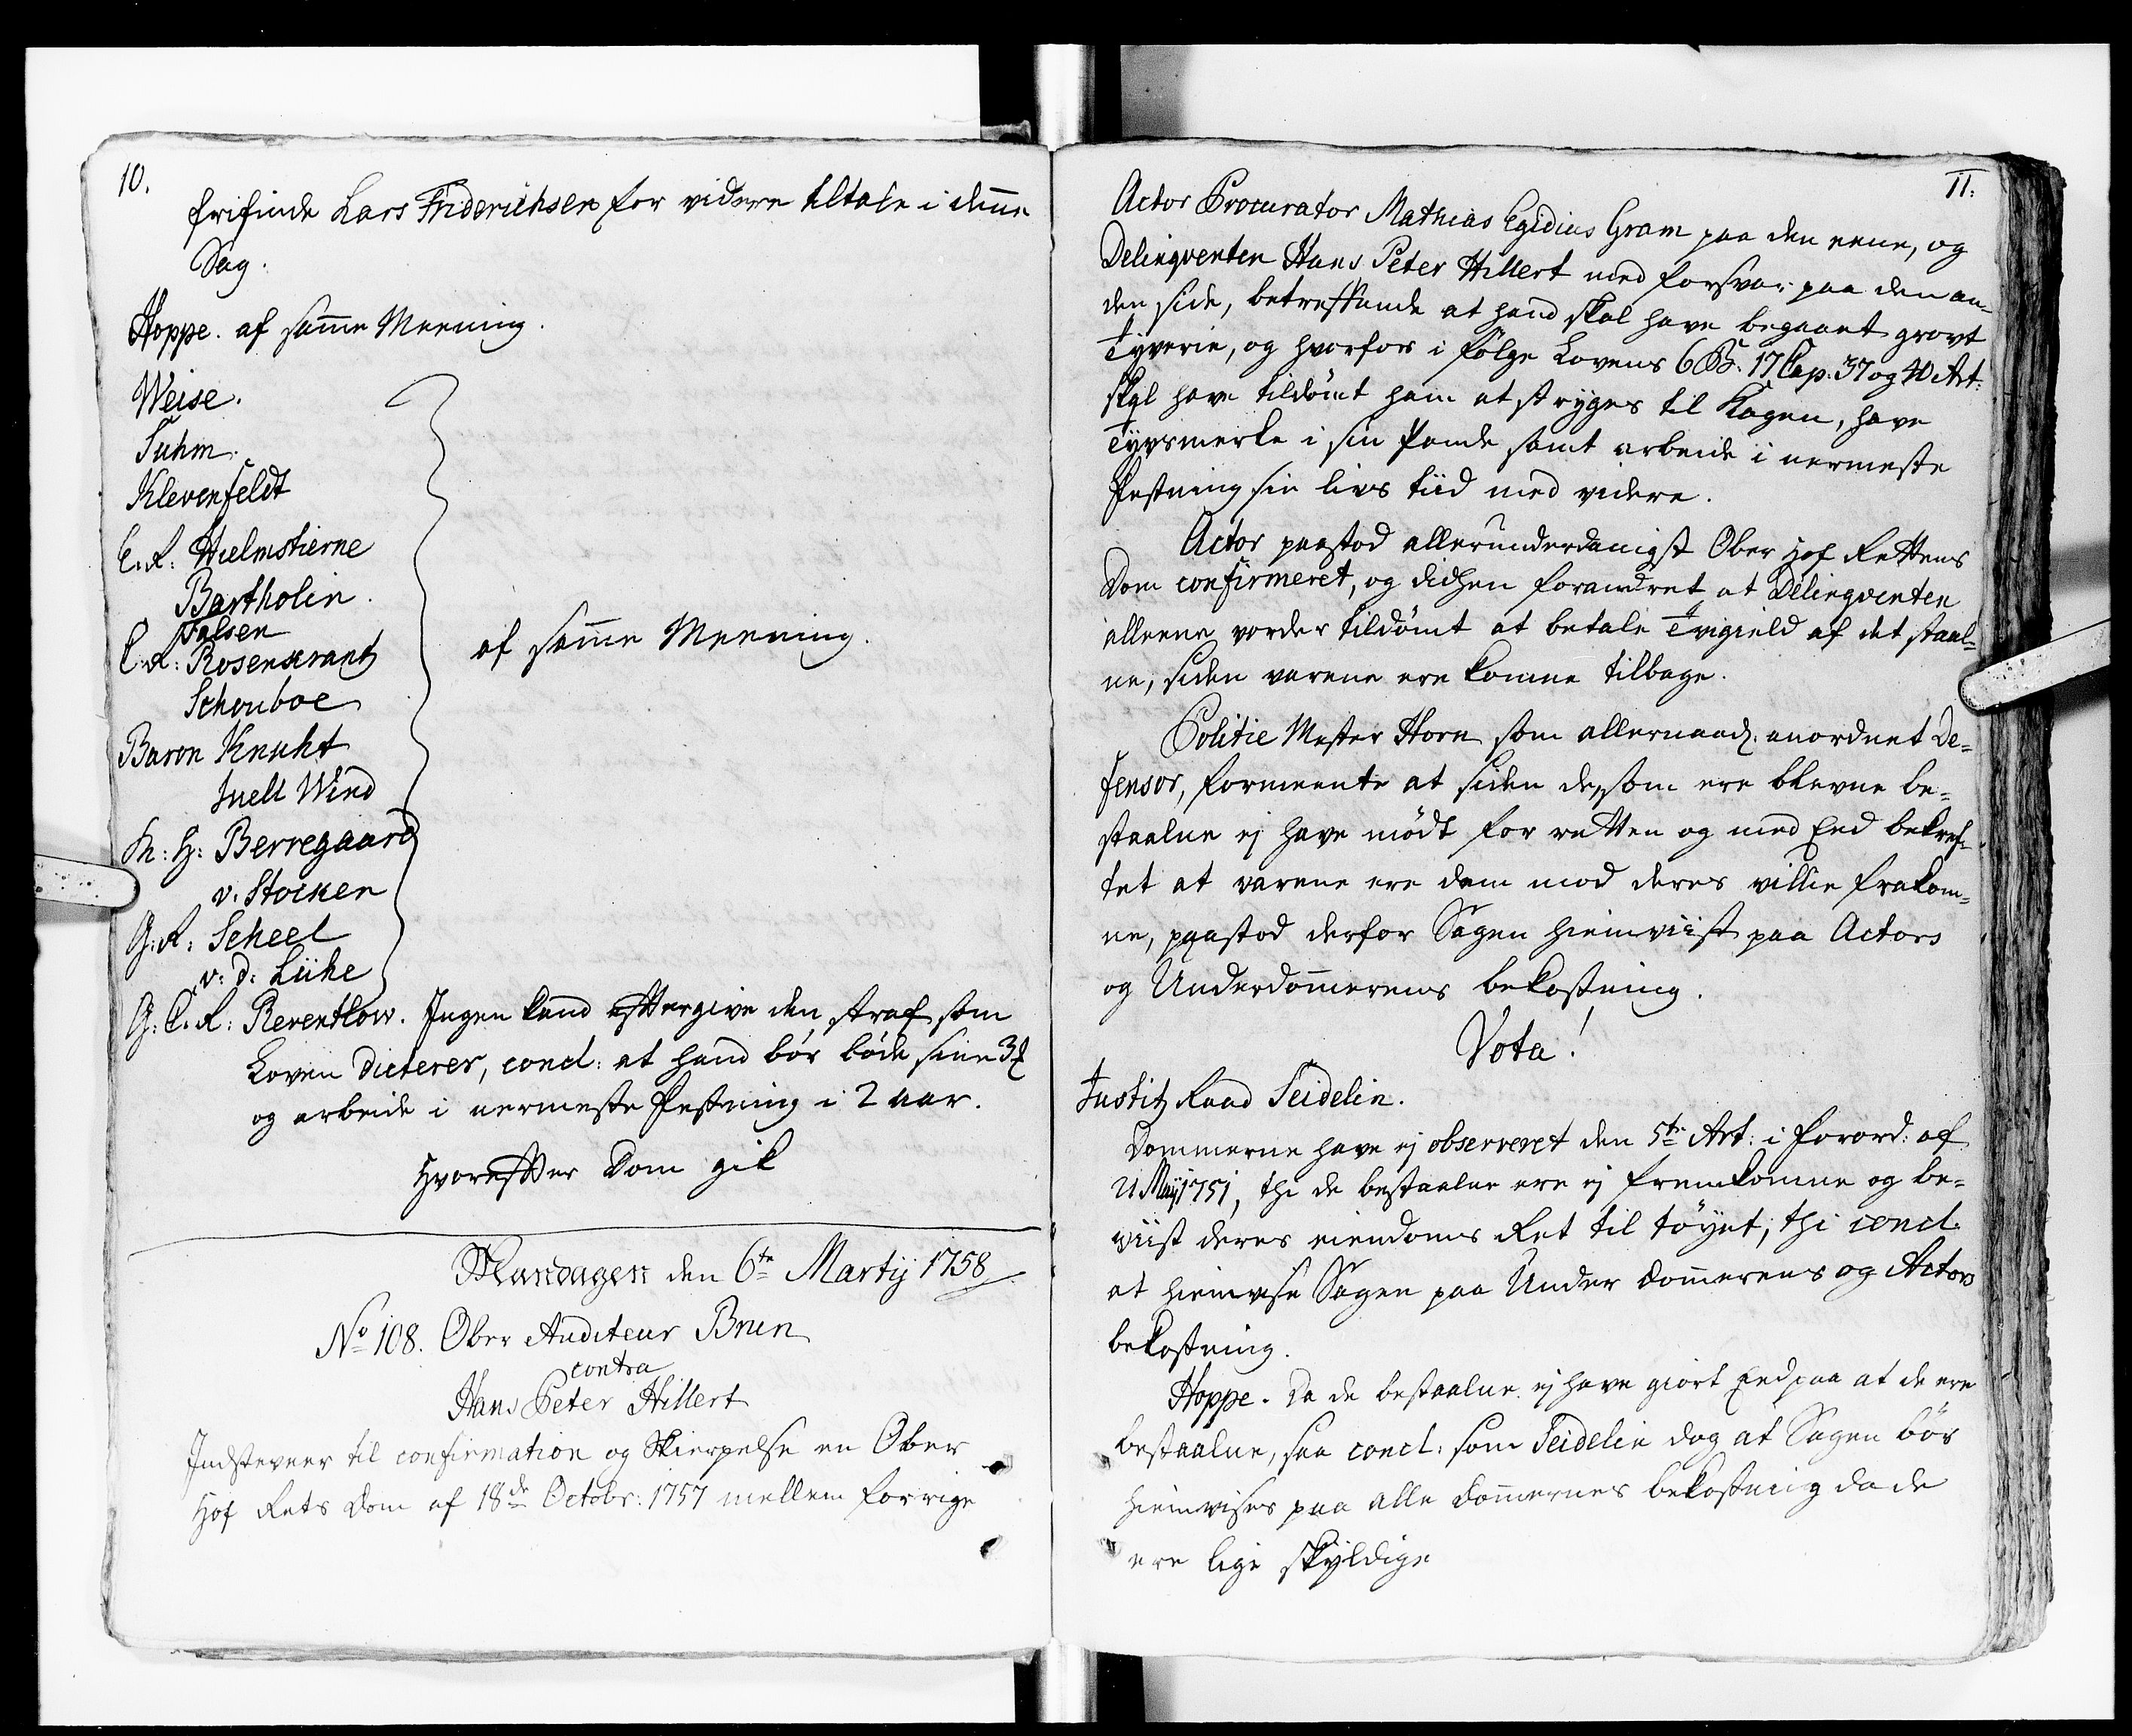 10.
frifinde Lars Friderichsen for videre tiltale i denne
Sag.
Hoppe. af samme Meening.
Weise.
Suhm.
Klevenfeldt
C. R: Hielmstierne
Bartholin.
Falsen
C. R: Rosenkrantz
Schouboe
Baron Knuht
Juell Wind
af samme Meening.
K: H: Berregaard
v. Stocken
G: R: Scheel
v: d: Lühe
G: C. R: Reventlow. Ingen kand eftergive den straf som
Loven dicterer, concl: at hand bør bøde sine 3
og arbeide i nermeste Festning i 2 aar.
Hvorefter Dom gik
Mandagen den 6te Martij 1758
No 108. Ober Auditeur Brun
contra
Hans Peter Hillert
Indstevner til confirmation og Skierpelse en Ober
Hof Rets Dom af 18de Octobr: 1757 mellem forrige
11:
Actor Procurator Mathias Egidius Gram paa den eene, og
Delinqventen Hans Peter Hillert med forsvar paa den an-
den side, betreffende at hand skal have begaaet grovt
Tyverie, og hvorfor i følge Lovens 6 B: 17 Cap. 37 og 40 Art:
skal have tildømt ham at stryges til Kagen, have
Tyvsmerke i sin Pande samt arbeide i nermeste
Festning sin livs tiid med videre.
Actor paastod allerunderdanigst Ober Hof Rettens
Dom confirmeret, og didhen forandret at Delinqventen
alleene vorder tildømt at betale Tvigield af det staal-
ne, siden varene ere komne tilbage.
Politie Mester Horn som allernaad: anordnet De-
fensor, formeente at siden de, som ere blevne be-
staalne ej have mødt for retten og med Eed bekref-
tet at varene ere dem mod deres villie frakom-
ne, paastod derfor Sagen hiemviist paa Actors
og Underdommerens bekostning.
Vota!
Justitz Raad Seidelin.
Dommerne have ej observeret den 5te Art: i Forord: af
21 Maij 1751, thi de bestaalne ere ej fremkomne og be-
viist deres eiendoms Ret til tøyet; thi concl.
at hiemvise Sagen paa Under Dommerens og Actors
bekostning.
Hoppe. Da de bestaalne ej have giort Eed paa at de ere
bestaalne, saa concl: som Seidelin dog at Sagen bør
hiemvises paa alle Dommernes bekostning da de
ere lige skyldige